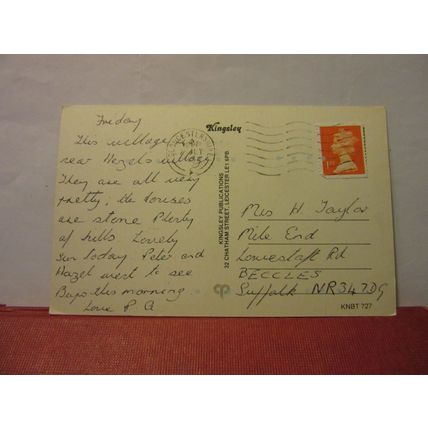 Friday
This village is
near Hazels village
They are all very
pretty, the houses
are stone Plenty
of hills. Lovely
sun today. Peter and
Hazel went to see
this morning.
Love P. G
Kingsley
KINGSLEY PUBLICATIONS
32 CHATHAM STREET, LEICESTER LE1 6PB
1ST
Mrs H. Taylor
Mile End
Lowestoft Rd
BECCLES
Suffolk NR34 7DG
KNBT 727